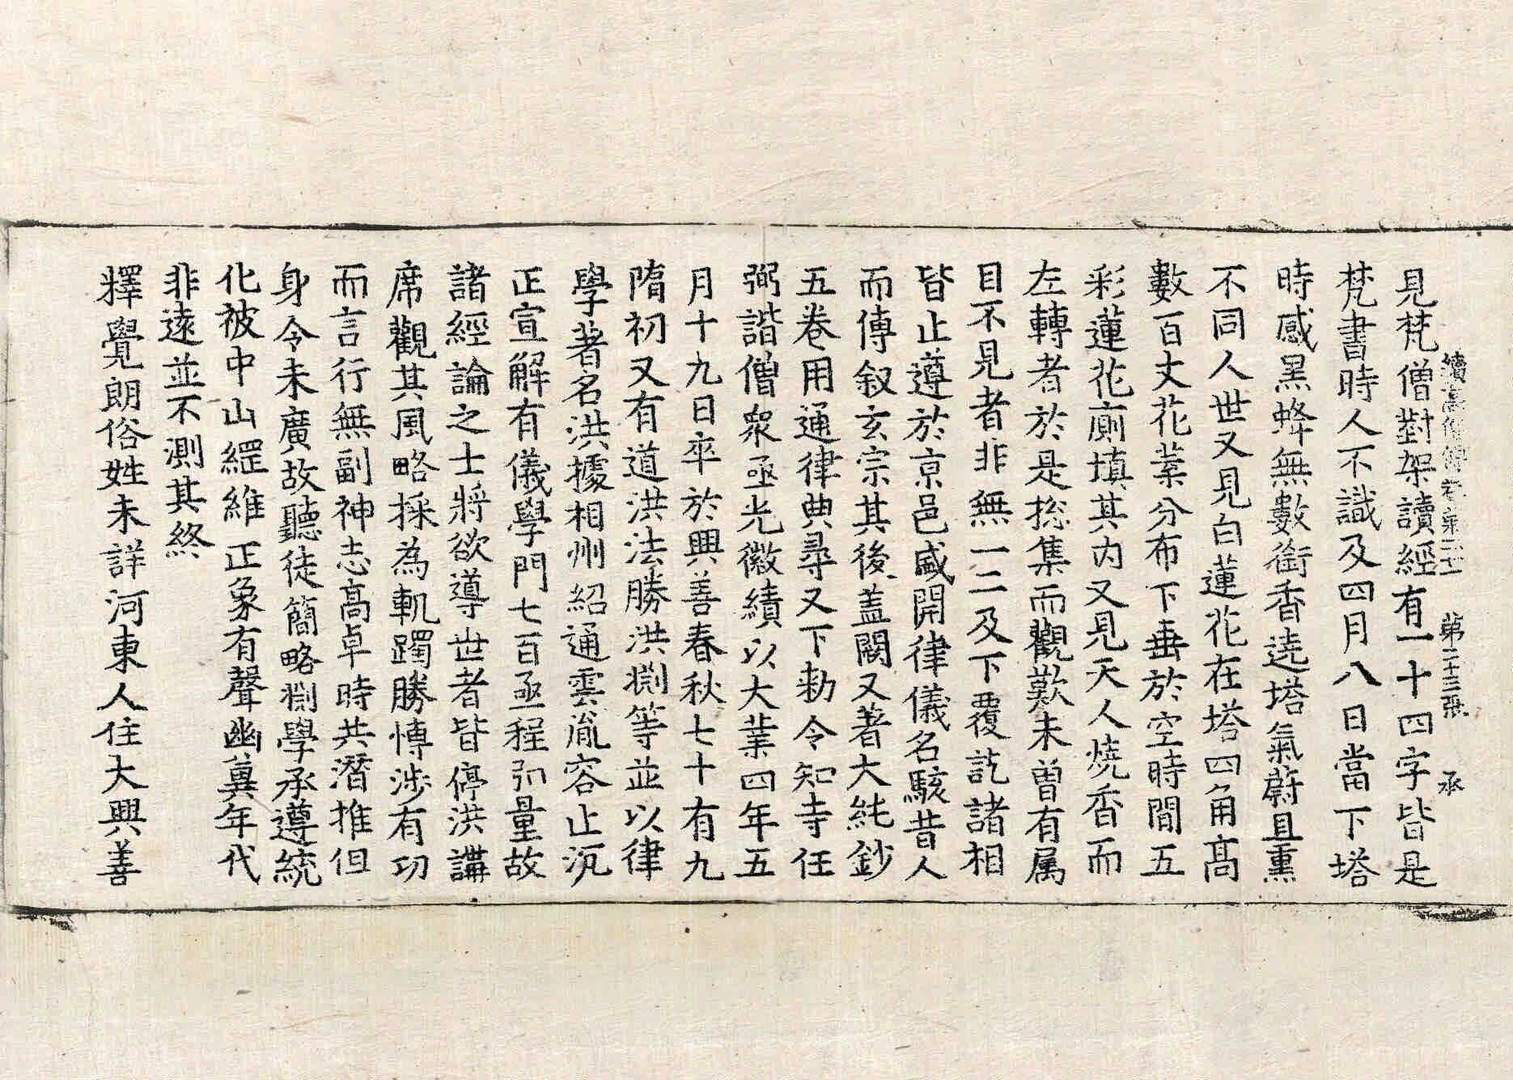 續高僧傳卷第二十一　第二十三張　承
見梵僧對架讀經有一十四字皆是
梵書時人不識及四月八日當下塔
時感黑蜂無數銜香遶塔氣蔚且熏
不同人世又見白蓮花在塔四角高
數百丈花葉分布下垂於空時間五
彩蓮花廁填其内又見天人燒香而
左轉者於是捴集而觀歎未曾有属
目不見者非無一二及下覆訖諸相
皆止遵於京邑盛開律儀名駭昔人
而傳叙玄宗其後蓋闕又著大純鈔
五卷用通律典尋又下勑令知寺任
弼諧僧衆亟光徽績以大業四年五
月十九日卒於興善春秋七十有九
隋初又有道洪法勝洪淵等並以律
學著名洪據相州紹通雲胤容止沉
正宣解有儀學門七百亟程弘量故
諸經論之士將欲導世者皆停洪講
席觀其風略採為軌躅勝博涉有功
而言行無副神志高卓時共潛推但
身令未廣故聽徒簡略淵學承遵統
化被中山纆維正象有聲幽冀年代
非遠並不測其終
釋覺朗俗姓未詳河東人住大興善